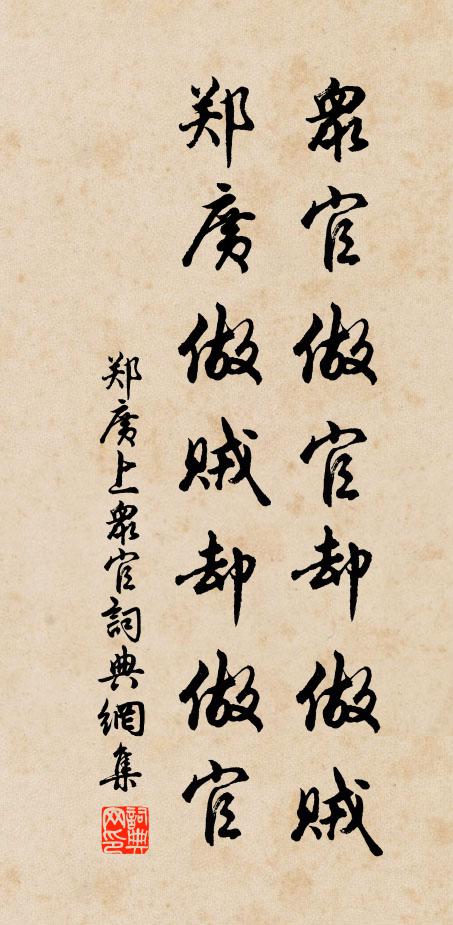 眾官做官却做贼
郑廣做贼却做官
郑廣上眾官詞典網集
詞典网印